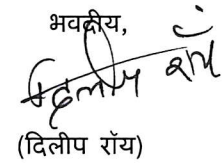 भवदीय,
दिलीप रॉय
(दिलीप रॉय)